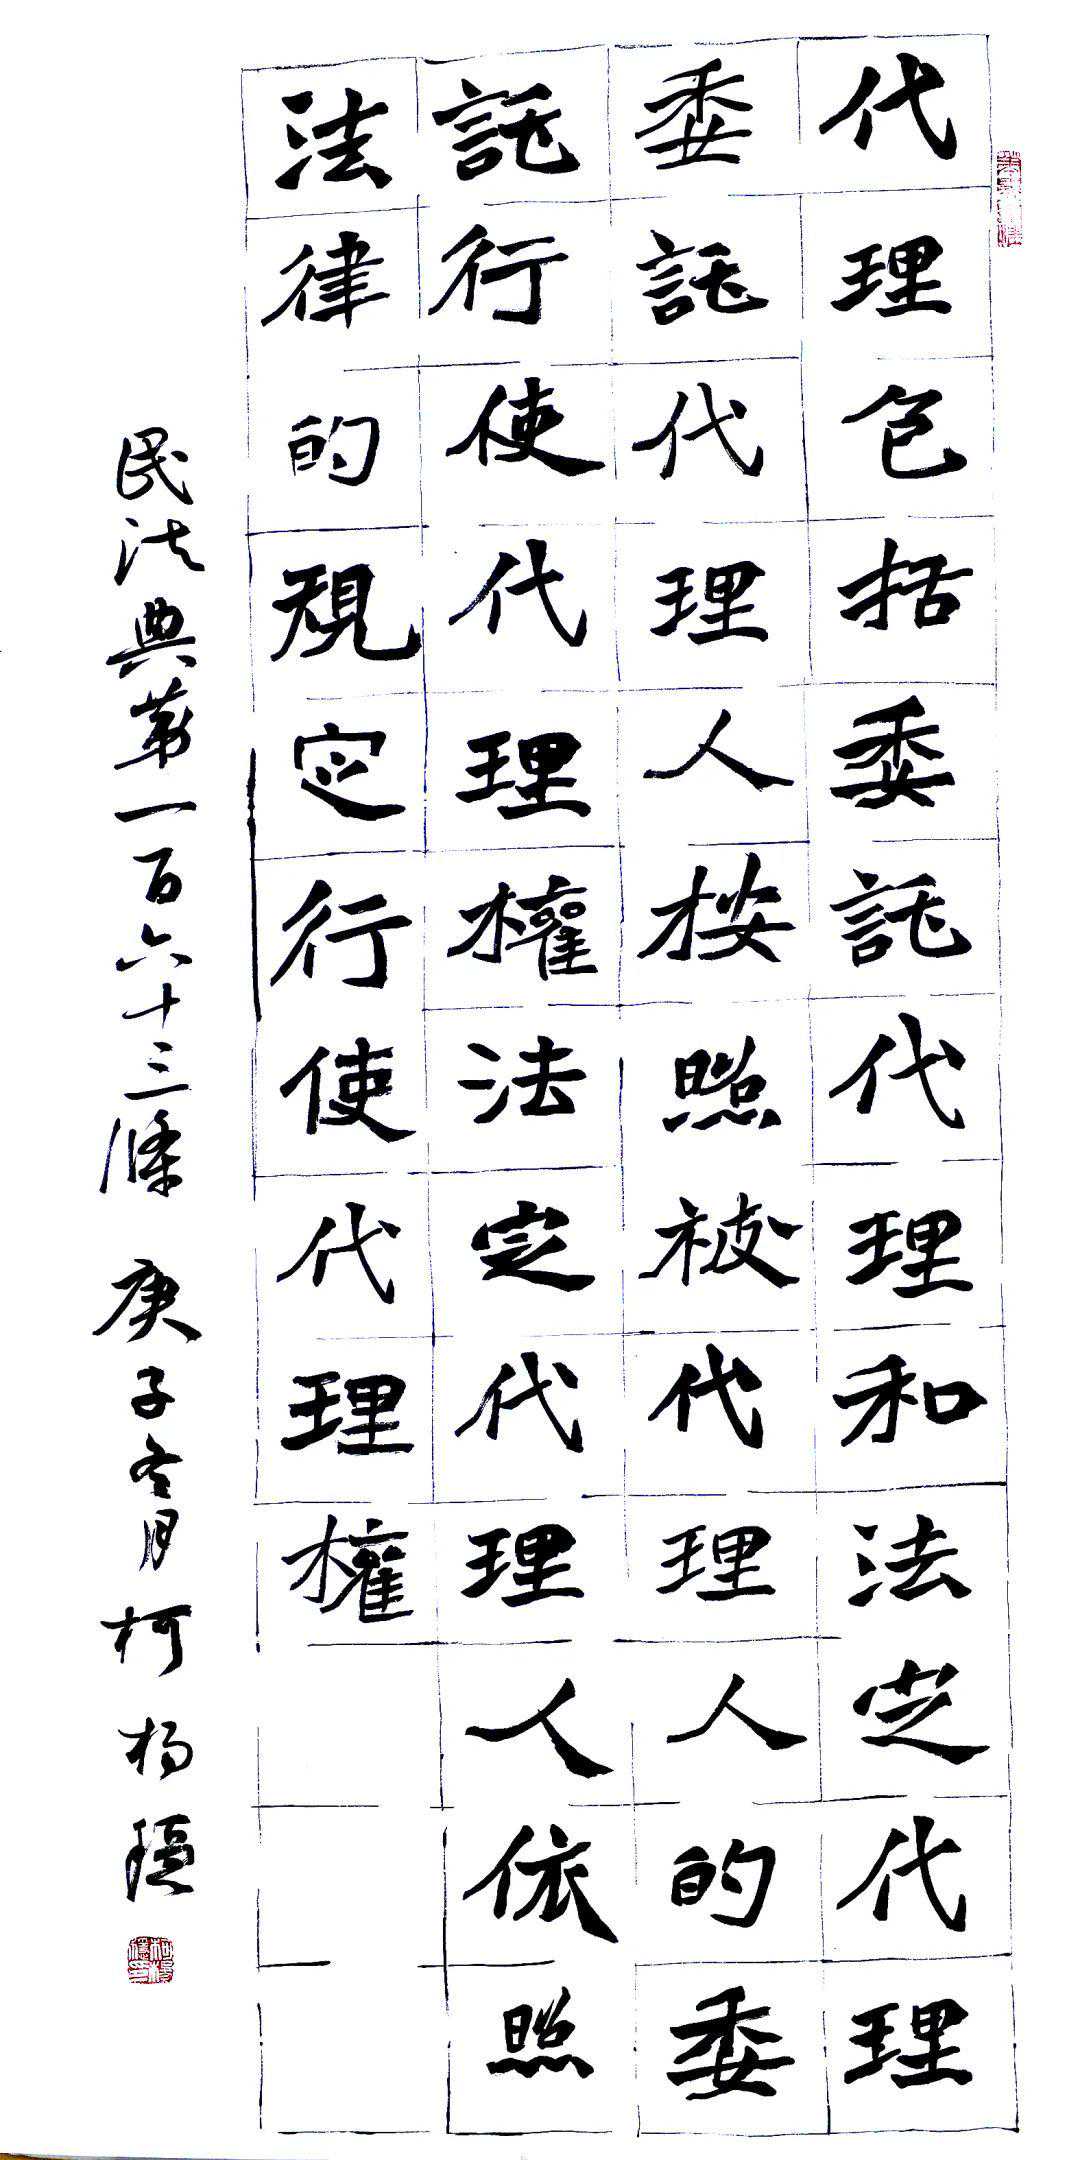 代理包括委託代理和法定代理
委託代理人按照被代理人的委
託行使代理權法定代理人依照
法律的規定行使代理權
民法典第一百六十三條 庚子冬月柯杨